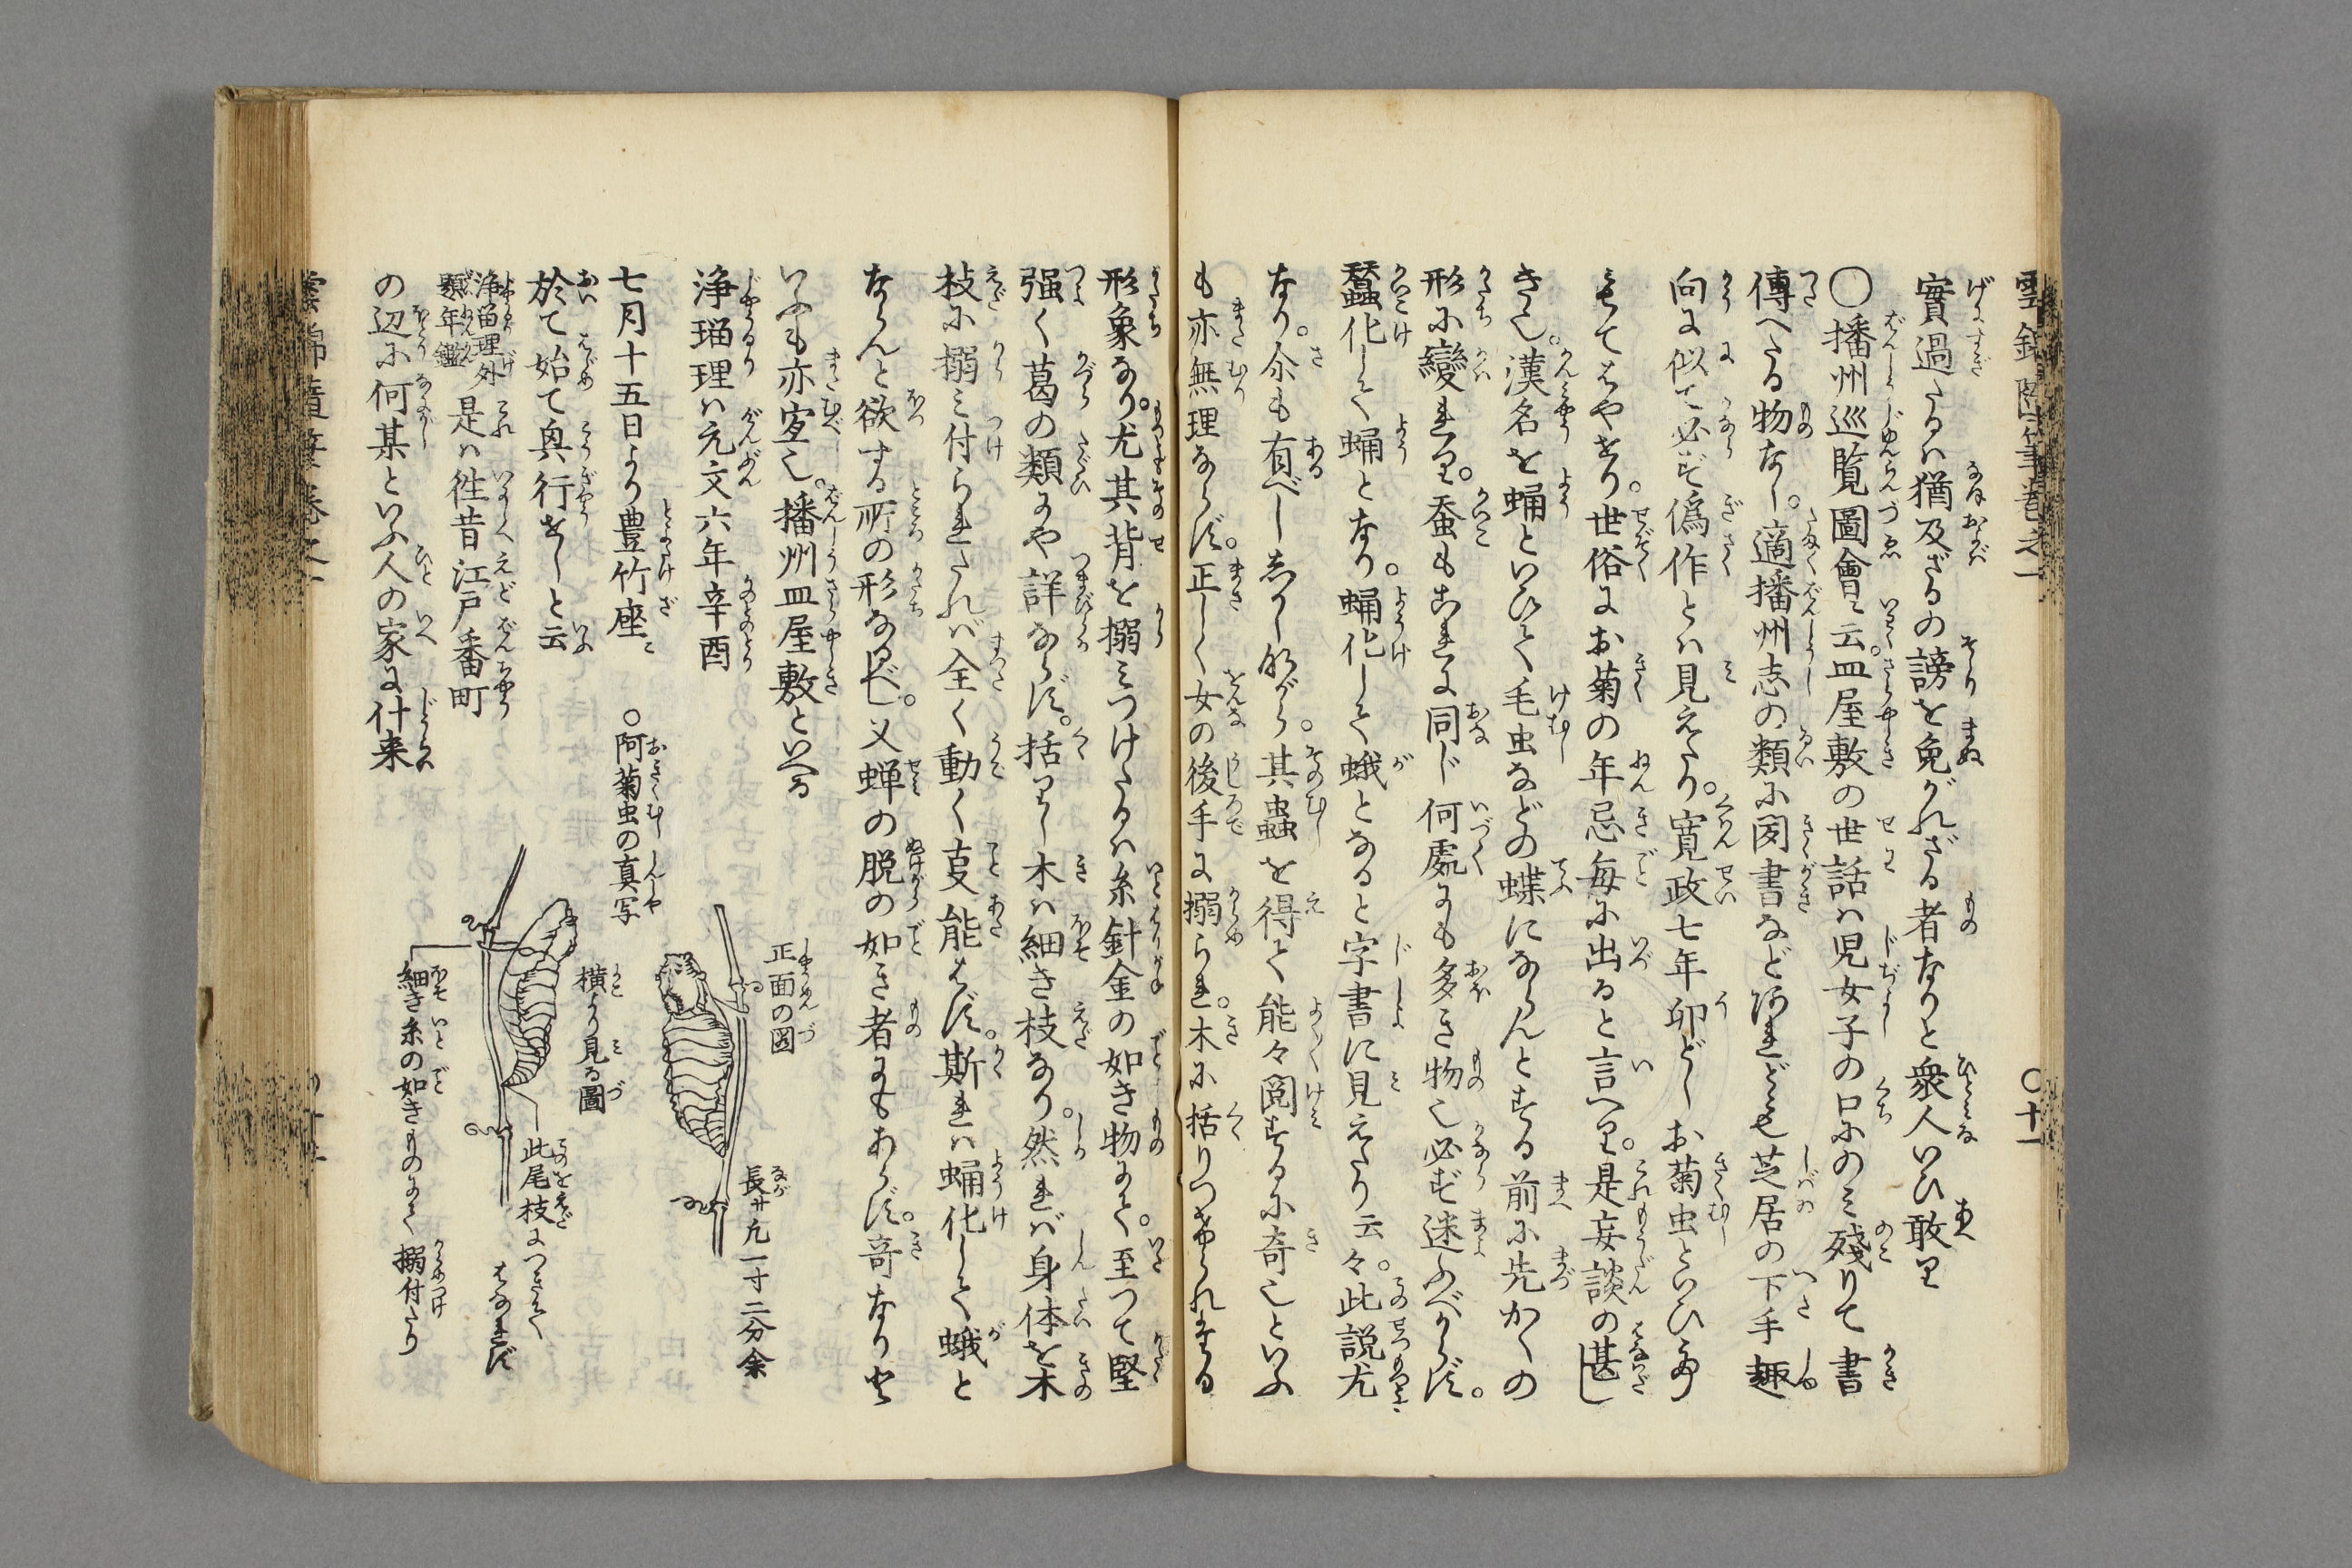 雲錦随筆巻之一
〇十一
實過たるハ猶及ざるの謗を免がれざる者なりと衆人いひ敢り
〇播州巡覧圖會ニ云。皿屋敷の世話ハ児女子の口にのミ殘りて書
傳へたる物なし。適播州志の類に図書などあれども芝居の下手趣
向に似て必ず偽作とハ見えたり。寛政七年卯どしお菊虫といひ
ミてもやせり。世俗にお菊の年忌毎に出ると言へり。是妄談の甚し
き也。漢名を蛹といひて毛虫などの蝶にならんとする前に先かくの
形に變れり。蚕もこれに同じ何處にも多き物也必ず迷ふべからず。
蠶化して蛹となり。蛹化して蛾となると字書に見えたり云々。此説尤
なり。余も有べし然しながら。其蟲を得て能々閲するに奇也といふ
も亦無理ならず。正しく女の後手に搦られ。木に括りつけられたる
形象なり。尤其背を搦ミつけたるハ糸針金の如き物にて。至つて堅
强く葛の類にや詳ならず。括りし木ハ細き枝なり。然れば身体を木
枝に搦ミ付られたれバ全く動く叓能はず。斯れハ蛹化して蛾と
ならんと欲する所の形なるべし。又蝉の脱の如き者にもあらず。奇なりと
いふも亦宜也。播州皿屋敷といへる
浄瑠理ハ元文六年辛酉
七月十五日より豊竹座ニ
於て始て奥行せしと云
浄瑠理外
題年鑑
是ハ徃昔江戸番町
の辺に何某といふ人の家に什来
正面の圖
長サ凢一寸二分余
〇阿菊虫の真写
横より見る圖
此尾枝につきて
はなれず
細き糸の如きものにて搦付たり
雲錦随筆巻之一